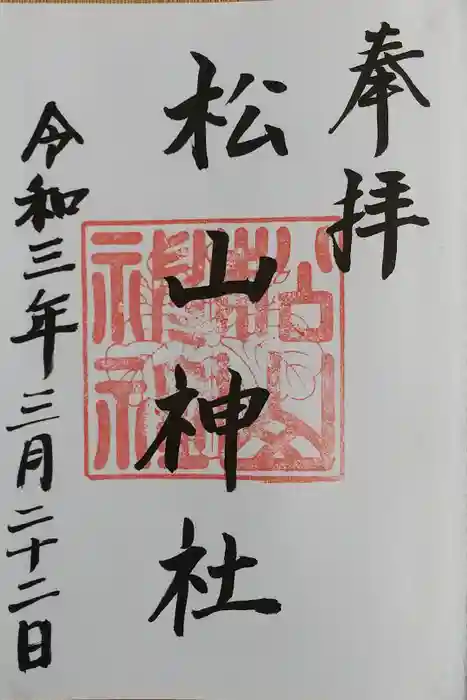 奉拝
松山神社
松山神社
令和三年三月二十二日